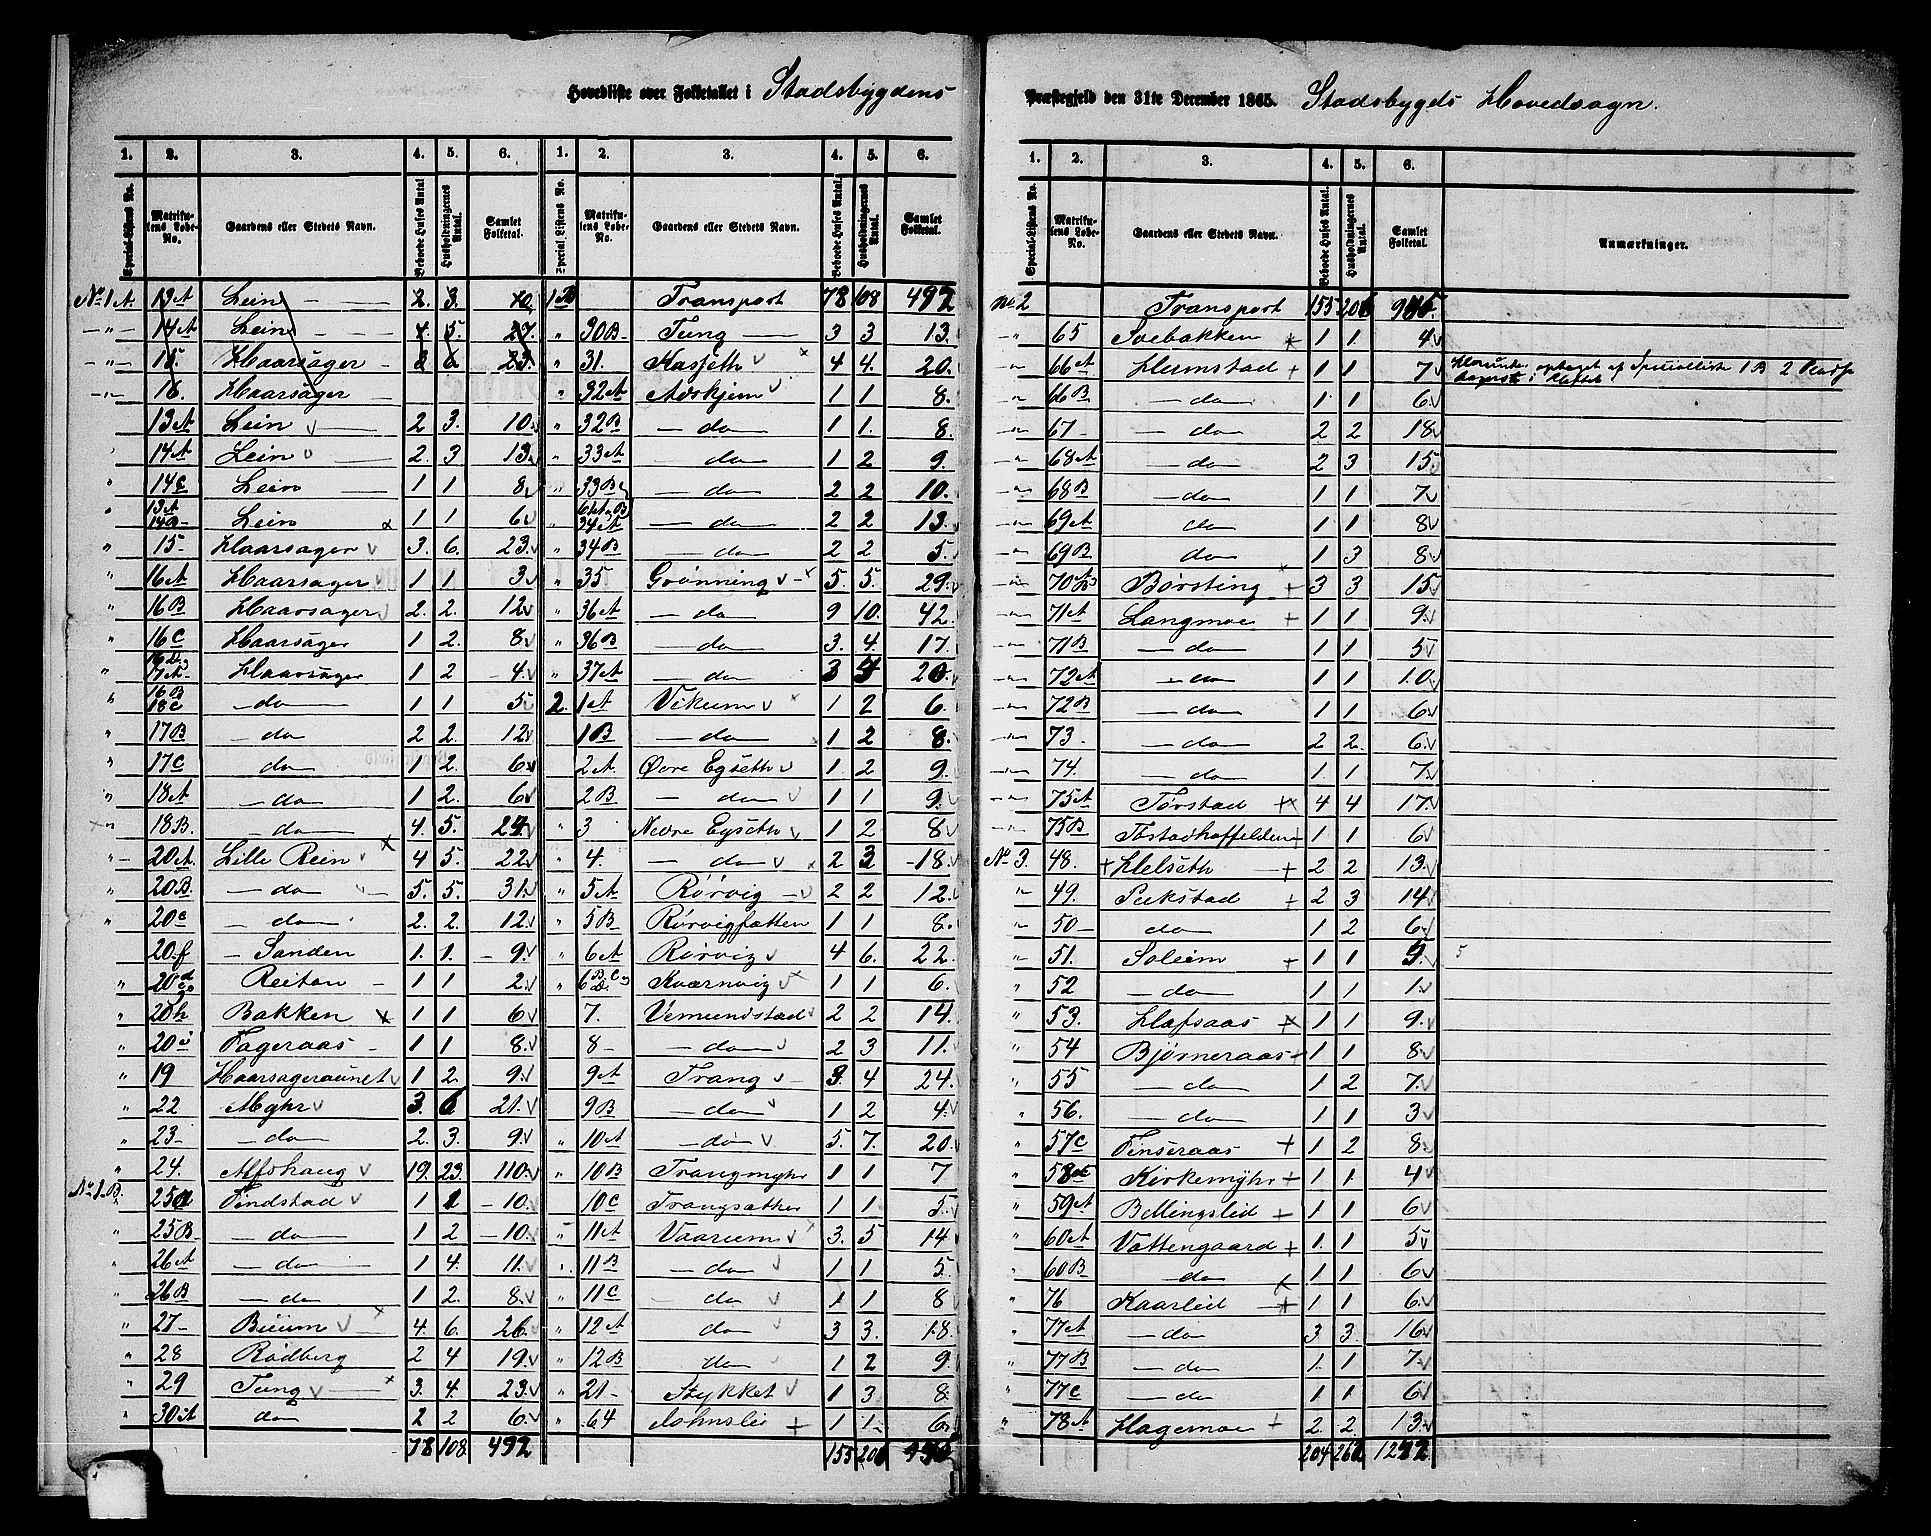 Hovedliste over Folketallet i Stadsbygdens Præstegjeld den 31te December 1865. Stadsbygds Hovedsogn.
1. 2. 3. 4. 5. 6. 1. 2. 3. 4. 5. 6.
Special-Listens No. Matrikulens Løbe-No. Gaardens eller Stedets Navn. Beboede Huses Antal Husholdningernes Antal. Samlet Folketal. Special-Listens No. Matrikulens Løbe-No. Gaardens eller Stedets Navn. Beboede Huses Antal. Husholdningernes Antal. Samlet Folketal.
No 1 A 13A Lein 2. 3.
14A Lein 4. 5. 27.
15. Haarsager 3 6 23.
16. Haarsager
13A Lein 2 3. 10.
14A Lein 2. 3 13.
14C Lein 1 1 8
13A 14B Lein 1 1 6
15 Haarsager 3. 6. 23.
16A Haarsager 1 1 3
16B Haarsager 2. 2. 12
16C Haarsager 1 2. 8
16D 7A Haarsager 1 2 4.
16B 18C do 1 1 5
17B do 2 2. 12
17C do 1 2. 6
18A do 1 2. 6
18B. do 4. 5. 24.
20A. Lille Rein 4 5. 22
20B. do 5. 5. 31.
20C do 2. 2. 12
20f Sanden 1. 1. 9.
20 Reitan 1 1 2.
20h Bakken 1 1 6
20i Fageraas 1 1 8.
19 Haarsageraunet 1 2. 9
22 Myhr 3. 6 21.
23 do 2. 3. 9.
24. Alfshaug 19. 23. 110.
No 1 B. 25a Findstad 1 1 10.
25B do 1 2 10.
26A do 1 4. 11.
26B do 1 2. 8.
27 Bieum 4. 6. 26.
28 Rødberg 2 4 19.
29 Tung 3. 4. 23.
30A do 2 2 6.
78 108 492
1B Transport 78 108 492
30B Tung 3 3 13.
31. Hasseth 4 4. 20.
32A Askjem 1 1 8.
32B do 1 1. 8.
33A do 1 2 9.
33B do 2 2 10.
34A do 2 2 13.
34B do 2 2 5.
35 Grønning 5. 5. 29.
36A do 9 10. 42
36B do 3. 4. 17.
37A do 3 4 20.
2. 1A Vikum 1 2 6.
1B do 1 2 8.
2A Øvre Egseth 1. 2 9.
2B do 1 1 9.
3 Nedre Egseth 1 2 8
4. do 2 3 18.
5A Rørvig 2 2 12.
5B Rørvigsætten 1 1 8.
6A Rørvig 4 6. 22.
6 B.C D. Kværnvig 1 1 6.
7. Vemundstad 2 2 14.
8 do 2 3 11.
9A Trang 3. 4 24.
9B do 1 2 4.
10A do 5. 7. 20.
10B Trangmyhr 1 1 7
10C Trangsætter 1 1 5.
11A Vaarum 3. 5 14
11B do 1 1 5.
11C do 1 1 8
12A do 3 3. 18.
12B do 1 2 9
21 Stykket 1 3 8
64 Johnslie 1 1. 6
155 206
1. 2. 3. 4. 5. 6.
Special-Listens No. Matrikulens Løbe-No. Gaardens eller Stedets Navn. Beboede Huses Antal. Husholdningernes Antal. Samlet Folketal. Anmærkninger.
No 2 Transport 155 206
65 Soebakken 1 1. 4
66A Hermstad 1 1. 7 optaget af Specialliste 1 B 2
66B do 1. 1 6
67 do 2 2 18
68A do 2 3 15.
68B do 1 1 7.
69A do 1 1 8
69B do 1 3 8.
70 Børsting 3 3 15
71A Langmoe 1 1 9.
71B do 1 1 5
72A do 1 1 10.
72B do 1 1 6
73. do 2 2. 6.
74. do 1. 1 7.
75A Tørstad 4 4 17.
75B Tøstadhaffelden 1 1 6.
No 3. 48. Helseth 2 2 13.
49. Pukstad 2 3 14
50 do 1 2 6.
51. Soleim 1 1 9. 5
52 do 1 1 1.
53. Hafsaas 1 1 9.
54 Bjørneraas 1 1 8
55 do 1 2 7.
56. do 1 1 3
57C Finseraas 1 2 8
58 Kirkemyhr 1 1. 4
59A Bellingslid 1 1 6
60A Vattengaard 1. 1 5
60B do 1 1 6
76 Kaarlid 1 1 6.
77A do 3. 3. 16
77B do 1. 1 7.
77C do 1 1 6.
78A Hagemoe 2. 2. 13.
204 262 1292